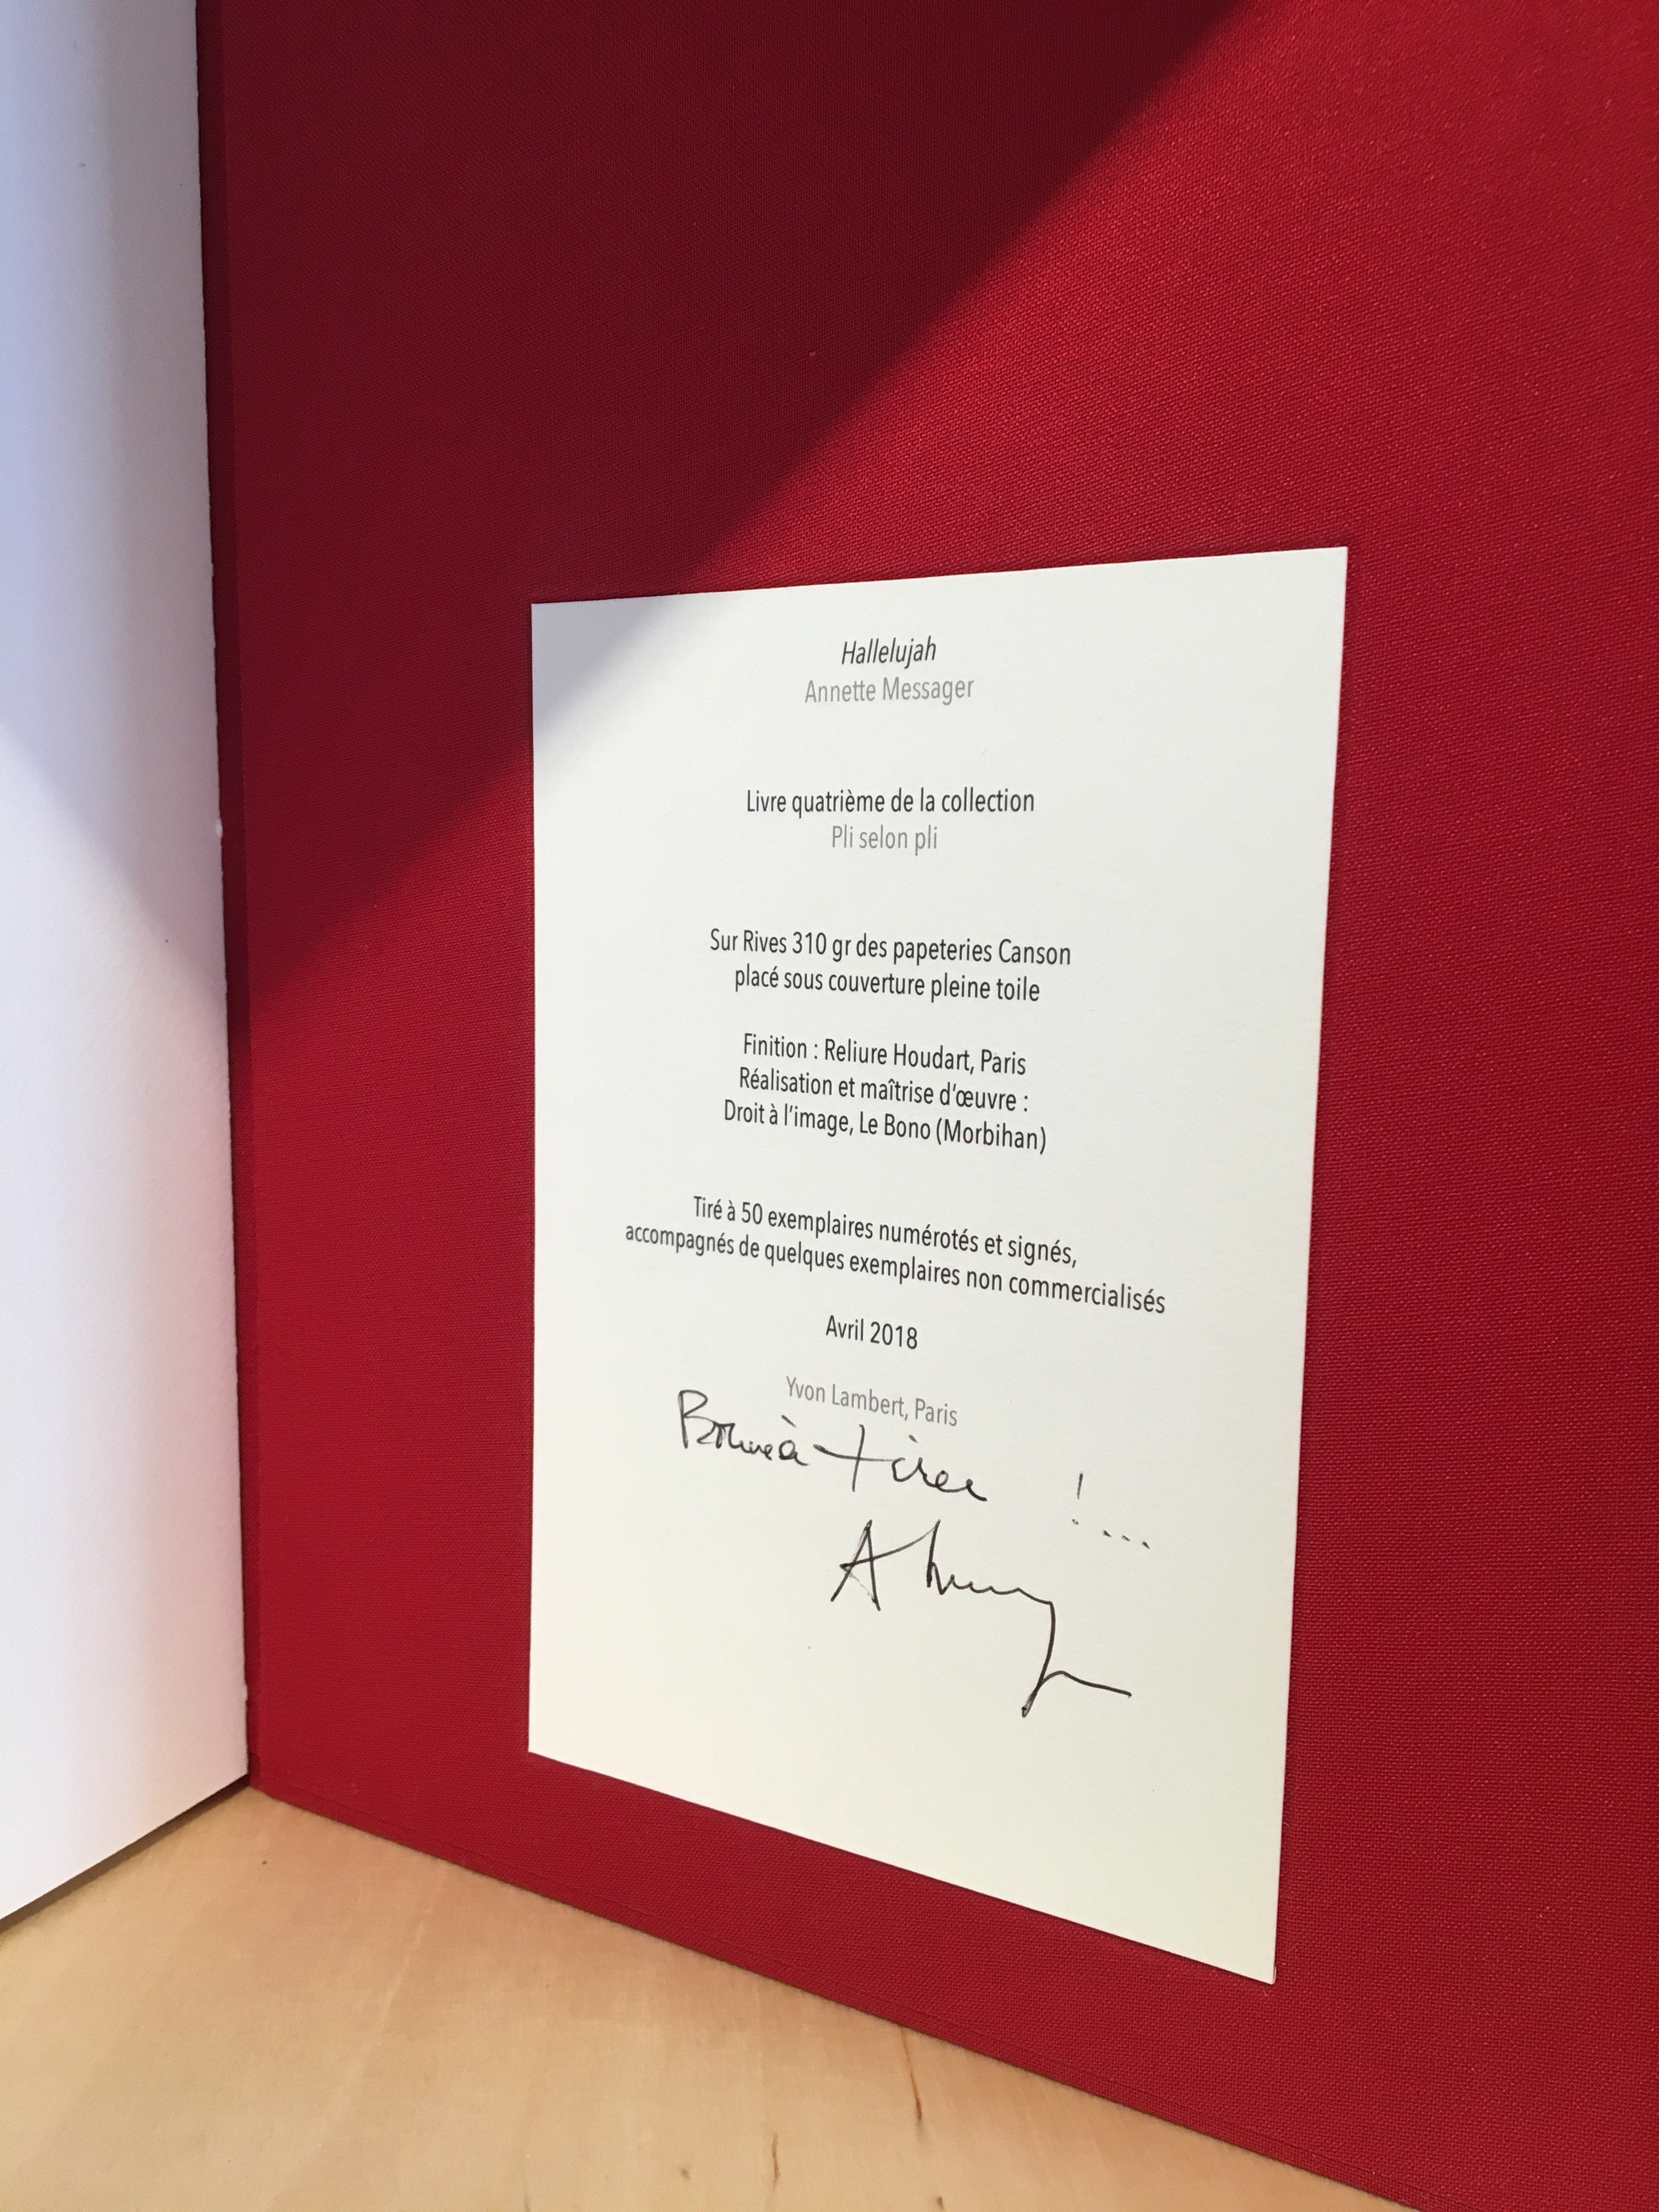 Hallelujah
Annette Messager
Livre quatrième de la collection
Pli selon pli
Sur Rives 310 gr des papeteries Canson
placé sous couverture pleine toile
Finition : Reliure Houdart, Paris
Réalisation et maîtrise d’œuvre :
Droit à l’image, Le Bono (Morbihan)
Tiré à 50 exemplaires numérotés et signés,
accompagnés de quelques exemplaires non commercialisés
Avril 2018
Yvon Lambert, Paris
à tirer !...